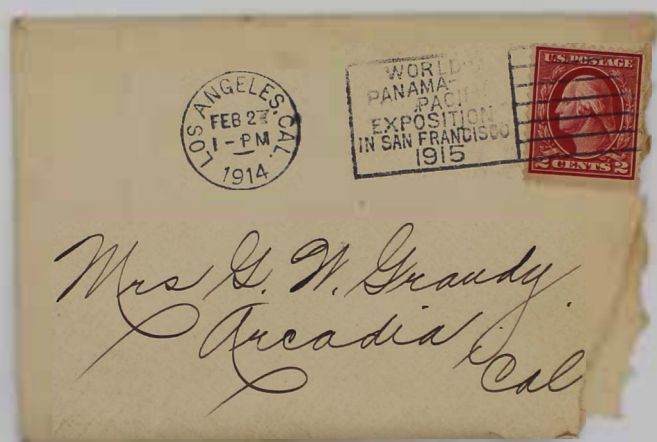 LOS ANGELES, CAL.
FEB 27
1 - PM
1914
WORLD'S
PANAMA-
PACIFIC
EXPOSITION
IN SAN FRANCISCO
1915
U.S. POSTAGE
2 CENTS 2
Mrs G. W. Grandy.
Arcadia,
Cal